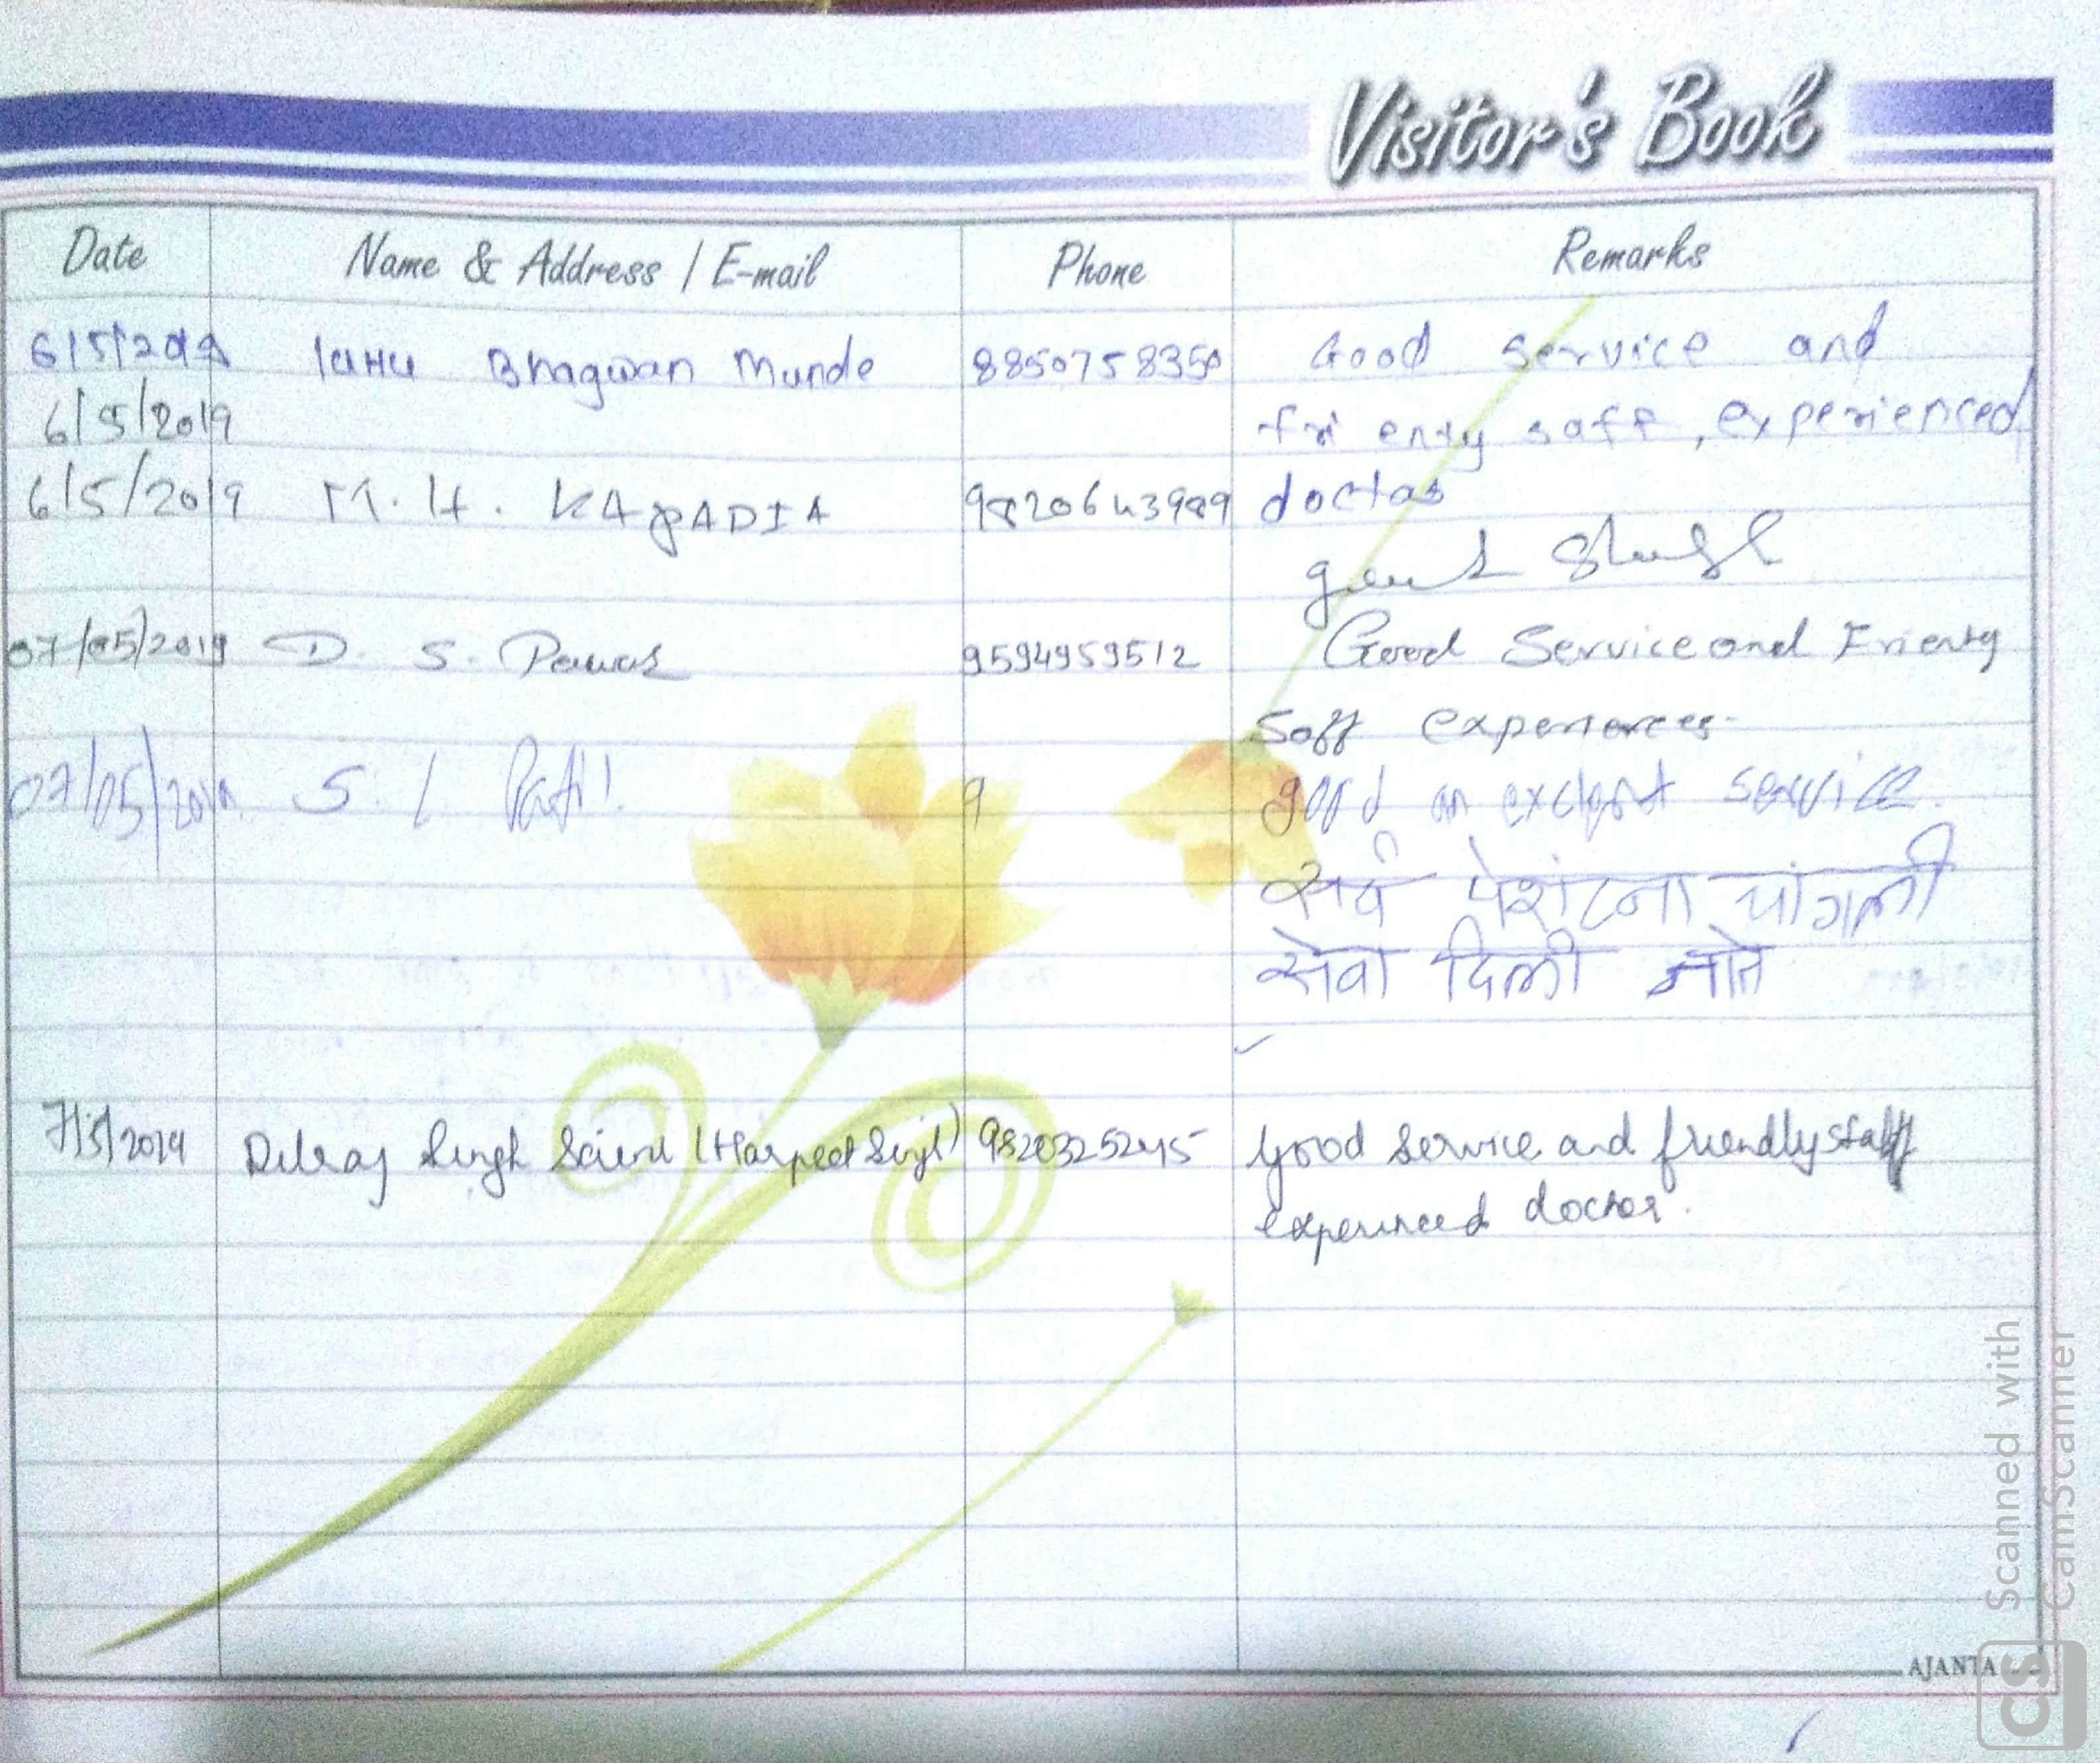 Visitor's Book
Date Name & Address / E-mail Phone Remarks
6/5/2019 lahu Bhagwan Munde 8850758350 Good service and
6/5/2019 fri enty saff, experienced
6/5/2019 M. H. KAPADIA 9820643989 doctas
07/05/2019 D. S. Pawar 9594959512 Good Service and Frienty
Soff experiences
07/05/201 S. L. Patil 9 good an service.
सर्व पेशंटना चांगली
सेवा दिली जाते
7/5/2019 Singh (Harpeet Singh) 9820325245 Good service and friendly staff
experinced doctor.
AJANTA
Scanned with
CamScanner
CS